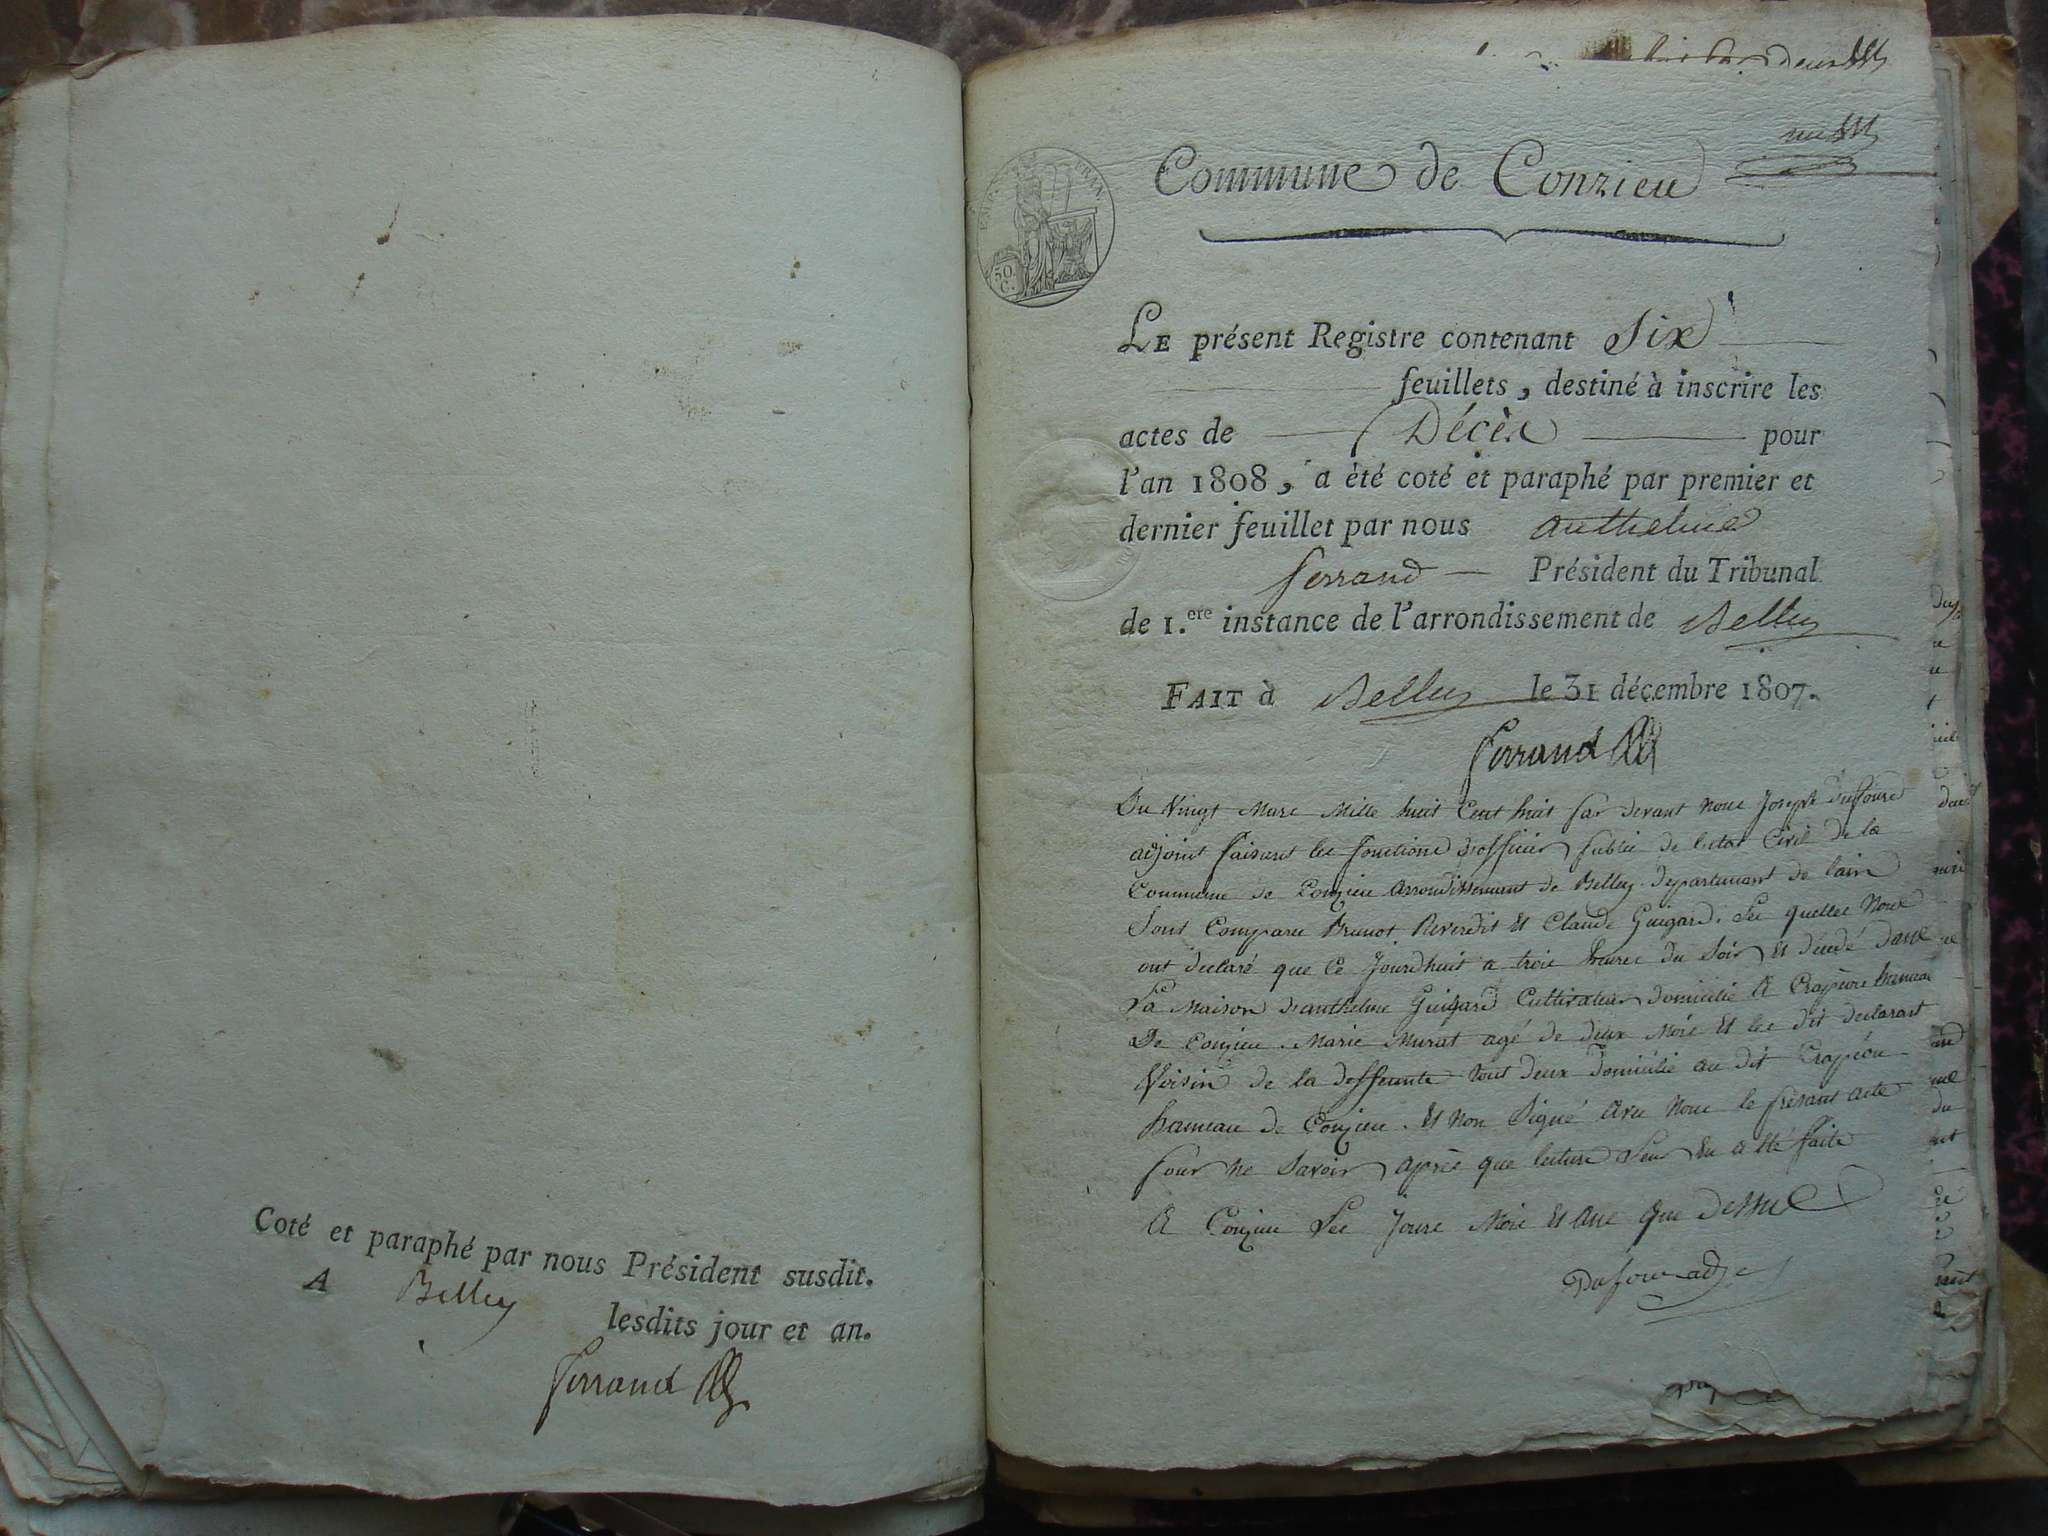 Coté et paraphé par nous Président susdit.
A Belley
lesdits jour et an.
Ferrand
Commune de Conzieu
50
C.
LE présent Registre contenant Six
feuillets, destiné à inscrire les
actes de Décès pour
l'an 1808, a été coté et paraphé par premier et
dernier feuillet par nous anthelme
ferrand Président du Tribunal
de 1.ere instance de l'arrondissement de Belley
FAIT à Belley le 31 décembre 1807.
Ferrand
Du Vingt Mars Mille huit Cent huit par devant nous Joseph dufours
adjoint faisant les fonctions d'officier public de letat Civil de la
Commune de Conzieu arrondissement de Belley departement de lain
Sont Comparu Brunot Reverdit et Claude Guigard. Les quelles nous
ont declaré que Ce Jourdhuit a trois heures du Soir et décédé dans
La Maison d'anthelme Guigard Cultivateur domicilié a Crapéou hameau
De Conzieu. Marie Murat agé de deux Mois et les dit declarant
Voisin de la deffunte tout deux domicilié au dit Crapéou
hameau de Conzieu. et non Signé avec nous le présant acte
pour ne Savoir après que lecture leur en a été faite
a Conzieu Les Jours Mois et ans que dessus
Dufour adj